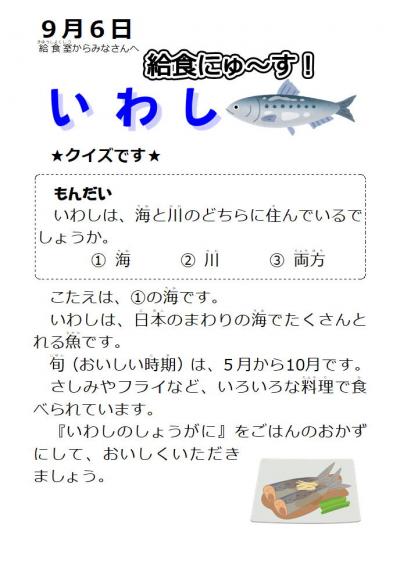 9月6日
給食室からみなさんへ
給食にゅ～す！
いわし
★クイズです★
もんだい
いわしは、海と川のどちらに住んでいるで
しょうか。
① 海　② 川　③ 両方
こたえは、①の海です。
いわしは、日本のまわりの海でたくさんと
れる魚です。
旬（おいしい時期）は、５月から10月です。
さしみやフライなど、いろいろな料理で食
べられています。
『いわしのしょうがに』をごはんのおかず
にして、おいしくいただき
ましょう。